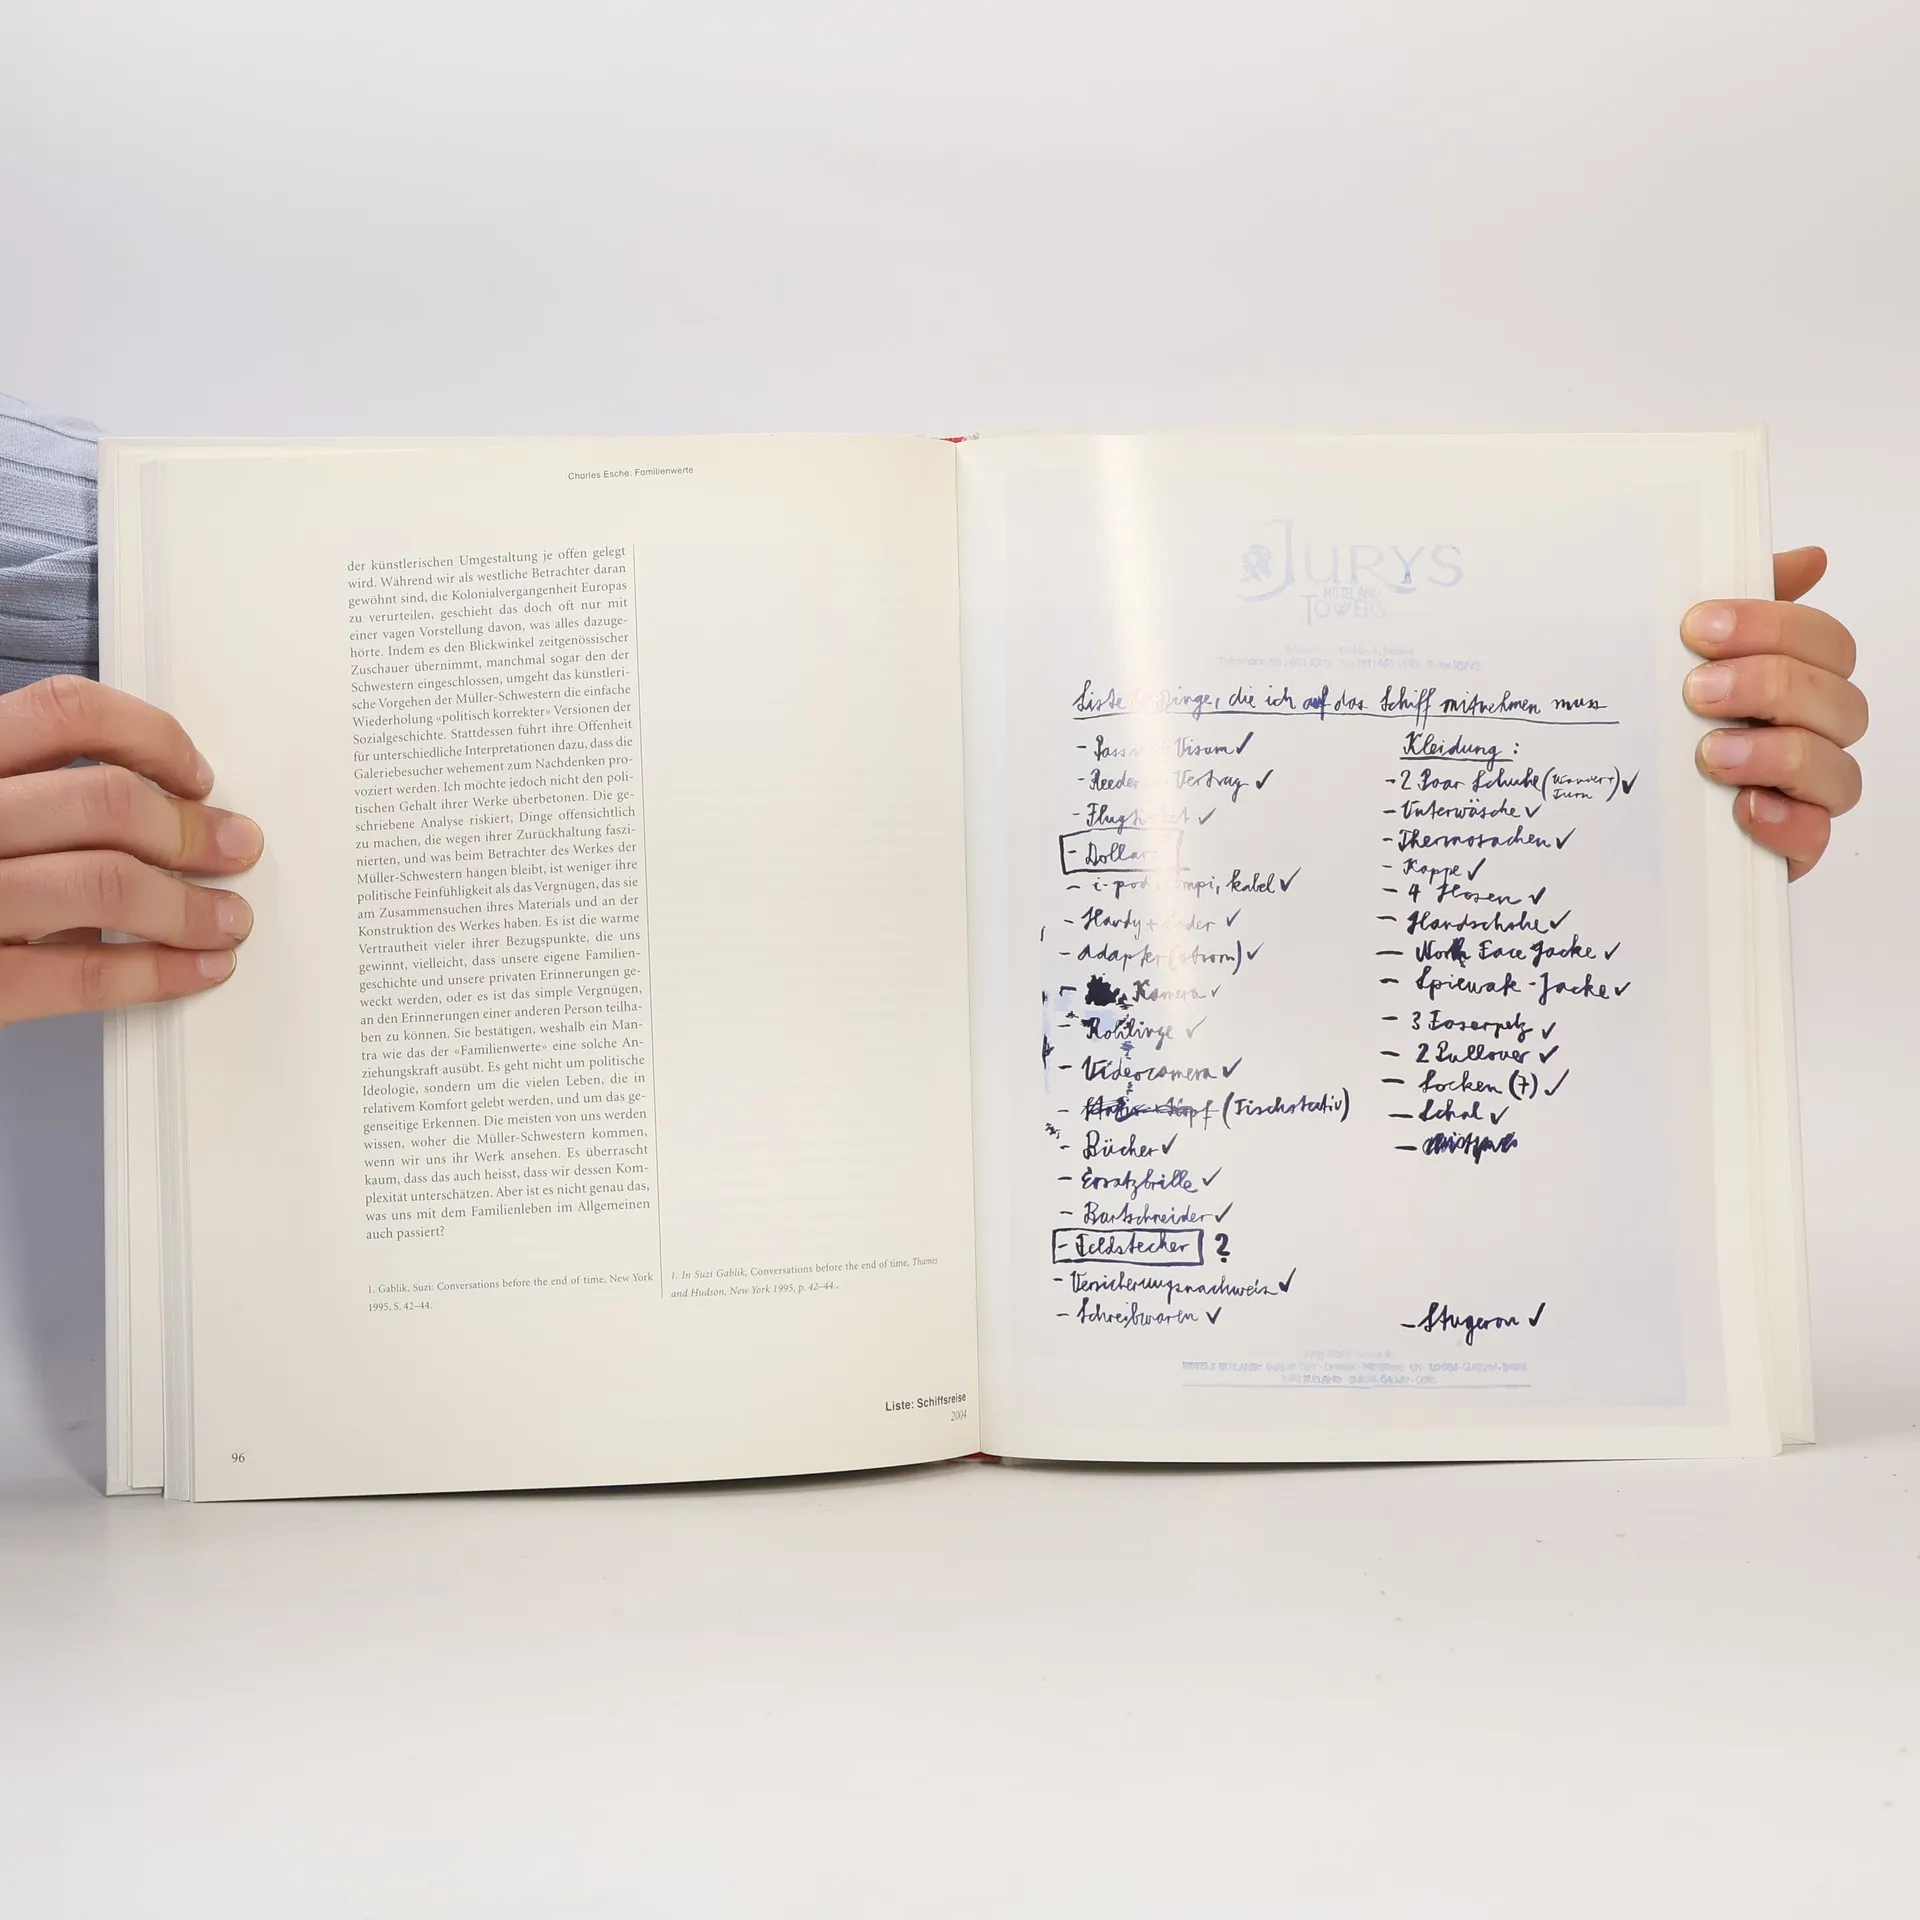 Charles Esche: Familienwerte
der künstlerischen Umgestaltung je offen gelegt
wird. Während wir als westliche Betrachter daran
gewöhnt sind, die Kolonialvergangenheit Europas
zu verurteilen, geschieht das doch oft nur mit
einer vagen Vorstellung davon, was alles dazuge-
hörte. Indem es den Blickwinkel zeitgenössischer
Zuschauer übernimmt, manchmal sogar den der
Schwestern eingeschlossen, umgeht das künstleri-
sche Vorgehen der Müller-Schwestern die einfache
Wiederholung «politisch korrekter» Versionen der
Sozialgeschichte. Stattdessen führt ihre Offenheit
für unterschiedliche Interpretationen dazu, dass die
Galeriebesucher wehement zum Nachdenken pro-
voziert werden. Ich möchte jedoch nicht den poli-
tischen Gehalt ihrer Werke überbetonen. Die ge-
schriebene Analyse riskiert, Dinge offensichtlich
zu machen, die wegen ihrer Zurückhaltung faszi-
nierten, und was beim Betrachter des Werkes der
Müller-Schwestern hängen bleibt, ist weniger ihre
politische Feinfühligkeit als das Vergnügen, das sie
am Zusammensuchen ihres Materials und an der
Konstruktion des Werkes haben. Es ist die warme
Vertrautheit vieler ihrer Bezugspunkte, die uns
gewinnt, vielleicht, dass unsere eigene Familien-
geschichte und unsere privaten Erinnerungen ge-
weckt werden, oder es ist das simple Vergnügen,
an den Erinnerungen einer anderen Person teilha-
ben zu können. Sie bestätigen, weshalb ein Man-
tra wie das der «Familienwerte» eine solche An-
ziehungskraft ausübt. Es geht nicht um politische
Ideologie, sondern um die vielen Leben, die in
relativem Komfort gelebt werden, und um das ge-
genseitige Erkennen. Die meisten von uns werden
wissen, woher die Müller-Schwestern kommen,
wenn wir uns ihr Werk ansehen. Es überrascht
kaum, dass das auch heisst, dass wir dessen Kom-
plexität unterschätzen. Aber ist es nicht genau das,
was uns mit dem Familienleben im Allgemeinen
auch passiert?
1. Gablik, Suzi: Conversations before the end of time, New York
1995, S. 42–44.
1. In Suzi Gablik, Conversations before the end of time, Thames
and Hudson, New York 1995, p. 42–44..
Liste: Schiffsreise
2004
96
JURYS
HOTEL AND
TOWERS
Liste Dinge, die ich auf das Schiff mitnehmen muss
- Visum ✓
- Vertrag ✓
- ✓
- Dollar
- i-pod, kabel ✓
- Handy + ✓
- Adapter (strom) ✓
- Kamera ✓
- Rohlinge ✓
- Videocamera ✓
- (Tischstativ)
- Bücher ✓
- Ersatzbrille ✓
- Bartschneider ✓
- Feldstecher ?
- Versicherungsnachweis ✓
- Schreibwaren ✓
Kleidung :
- 2 Paar Schuhe (Wander + Turn) ✓
- Unterwäsche ✓
- Thermosachen ✓
- Kappe ✓
- 4 Hosen ✓
- Handschuhe ✓
- North Face Jacke ✓
- Spiewak-Jacke ✓
- 3 Faserpelz ✓
- 2 Pullover ✓
- Socken (7) ✓
- Schal ✓
- Stugeron ✓